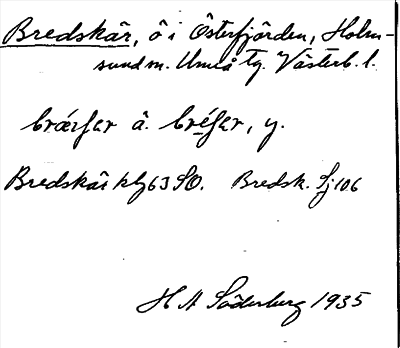 Bredskär, ö i Österfjärden, Holm-
sund sn. Umeå tg. Västerb. l.
bræ̂ſer â. bréſer, y.
Bredskär kbl 63 SO. Bredsk. Sj 106
H A Söderberg 1935